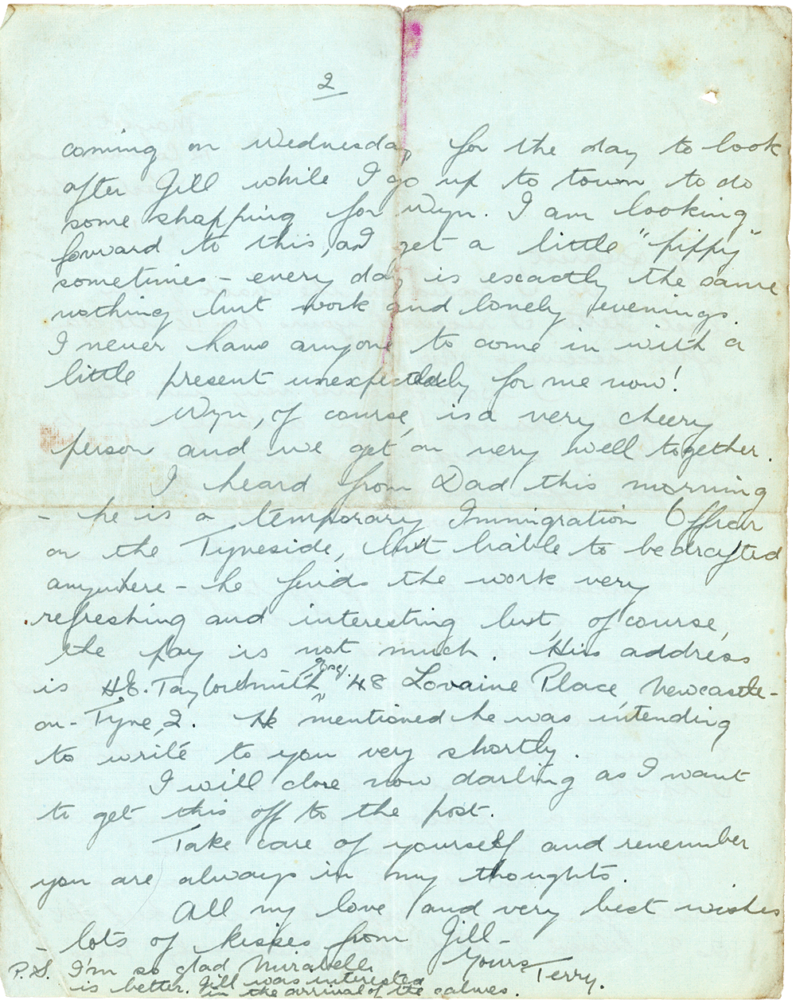 2
coming on Wednesday for the day to look
after Gill while I go up to town to do
some shopping for Wyn. I am looking
forward to this, as I get a little "pippy"
sometimes – every day is exactly the same
nothing but work and lonely evenings.
I never have anyone to come in with a
little present unexpectedly for me now!
Wyn, of course, is a very cheery
person and we get on very well together.
I heard from Dad this morning
– he is a temporary Immigration Officer
on the Tyneside, but liable to be drafted
anywhere – he finds the work very
refreshing and interesting but, of course,
the pay is not much. His address
is H.E. Taylor Smith Esq. 48 Lovaine Place, Newcastle-
on-Tyne, 2. He mentioned he was intending
to write to you very shortly.
I will close now darling as I want
to get this off to the post.
Take care of yourself and remember
you are always in my thoughts.
All my love and very best wishes
– lots of kisses from Gill –
Yours Terry.
P.S. I'm so glad Mirabelle
is better. Gill was interested
in the arrival of the calves.